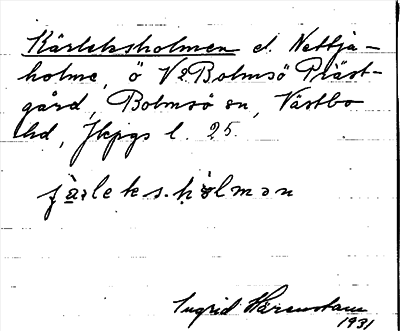 Kärleksholmen el. Nettja-
holme, ö V. Bolmsö Präst-
gård, Bolmsö sn, Västbo
hd, Jkpgs l. 25.
jä̀rleks.hòlmən
Ingrid Härenstam
1931